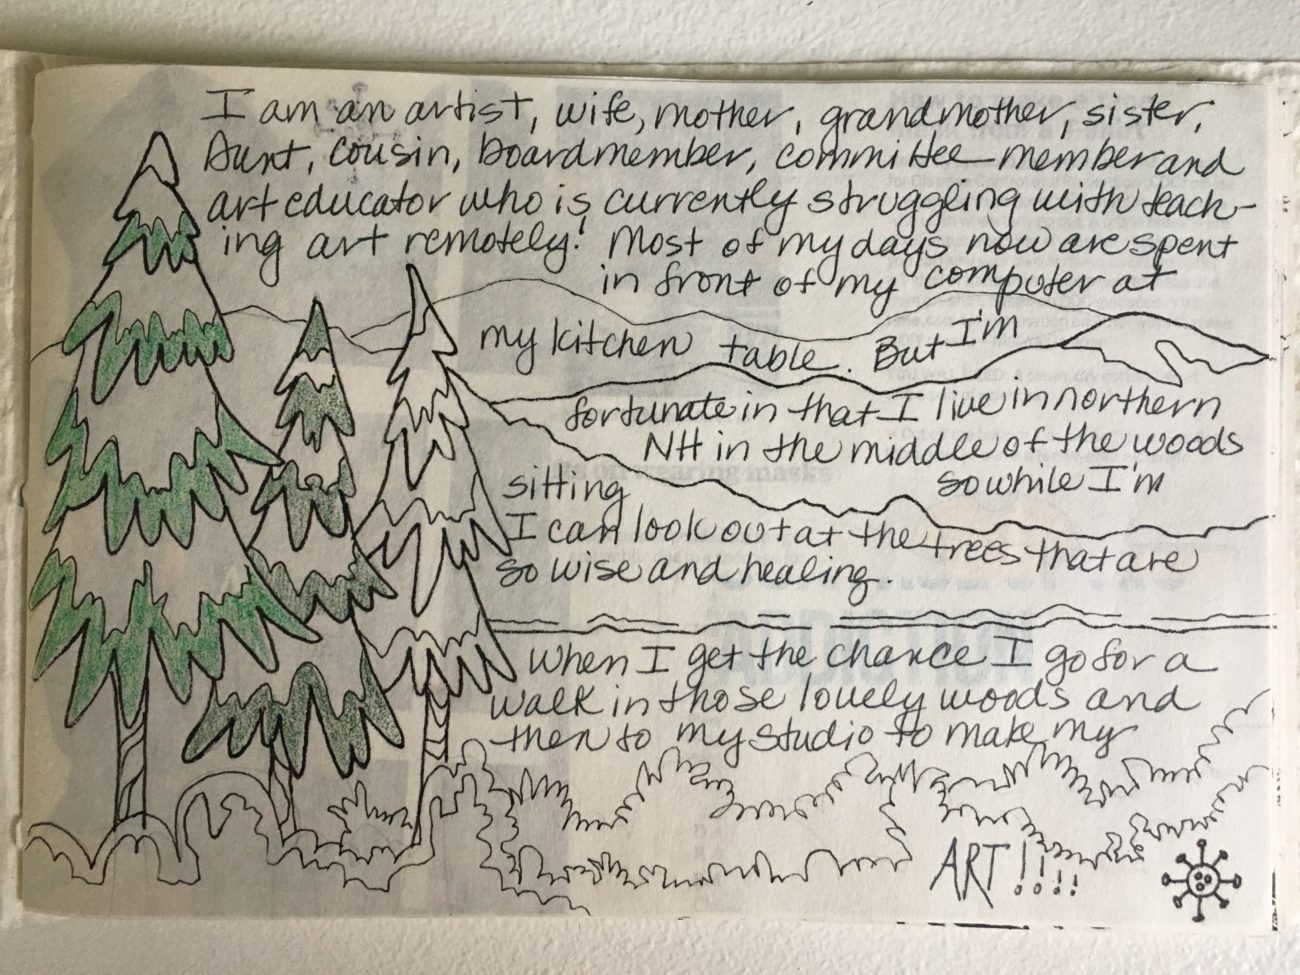 I am an artist, wife, mother, grandmother, sister,
Aunt, cousin, boardmember, committee member and
art educator who is currently struggling with teach-
ing art remotely! Most of my days now are spent
in front of my computer at
my kitchen table. But I'm
fortunate in that I live in northern
NH in the middle of the woods
so while I'm
sitting
I can look out at the trees that are
so wise and healing.
When I get the chance I go for a
walk in those lovely woods and
then to my studio to make my
ART!!!!
on wearing masks
ADDICTION